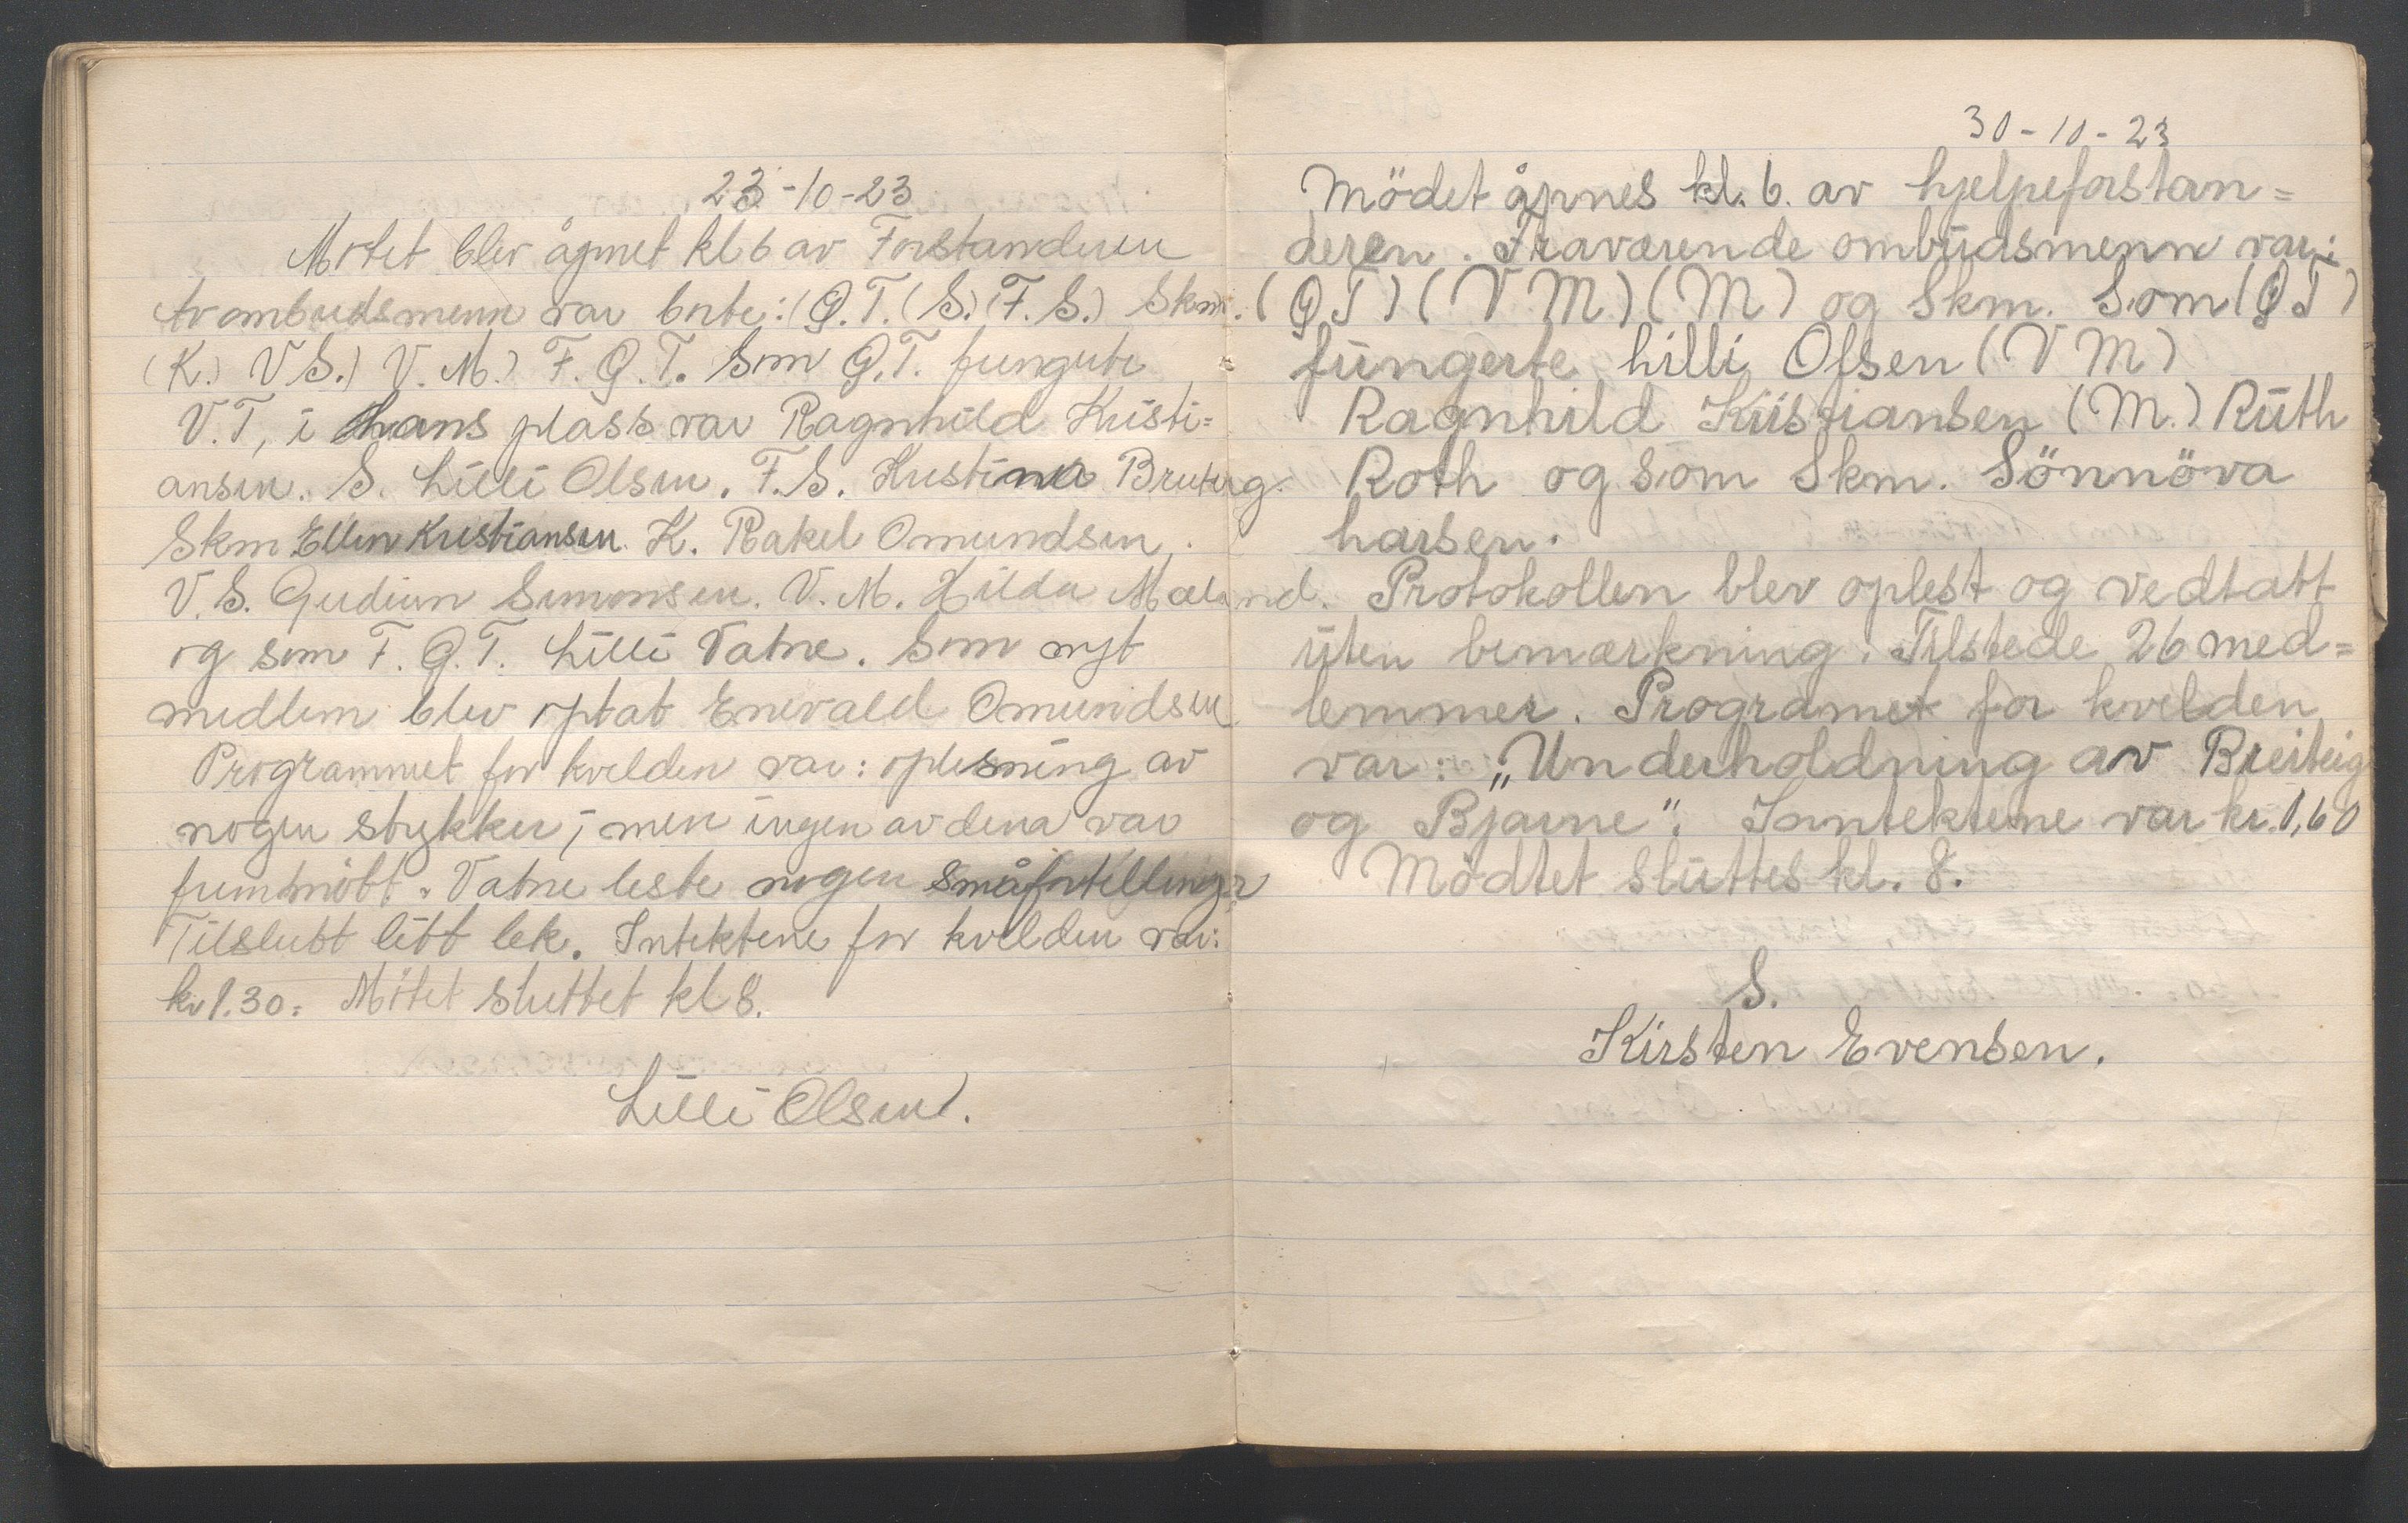 23-10-23
Møtet blev åpnet kl 6 av Forstanderen
Av ombudsmenn var borte: (G.T. (S.) (F.S.) Skm.
(K.) V S.) V. M.) F. G. T. Som G.T. fungerte
V.T, i hans plass var Ragnhild Kristi=
ansen. S. Lilli Olsen. F.S. Kristina Bruteig.
Skm Ellen Kristiansen. K. Rakel Omundsen.
V.S. Gudrun Simonsen. V.M. Hilda Mæland.
og som F. G.T. Lilli Vatne. Som nyt
medlem blev optat Enevald Omundsen
Programmet for kvelden var: oplesning av
nogen stykker, men ingen av dem var
fremmøtt. Vatne leste nogen småfortellinger
Tilslutt litt lek. Intektene for kvelden var:
kr 1.30= Møtet sluttet kl 8.
Lilli Olsen.
30-10-23
Mödet åpnes kl. 6. av hjelpeforstan=
deren. Fraværende ombudsmenn var:
(G T) (V M) (M) og Skm. Som (G T)
fungerte Lilli Olsen (V M)
Ragnhild Kristiansen (M.) Ruth
Roth og som Skm. Sönnöva
Larsen.
Protokollen blev oplest og vedtatt
uten bemærkning. Tilstede 26 med=
lemmer. Programet for kvelden
var: „Underholdning av Breiteig
og Bjarne". Inntektene var kr. 1,60
Mödtet sluttes kl. 8.
S.
Kirsten Evensen.